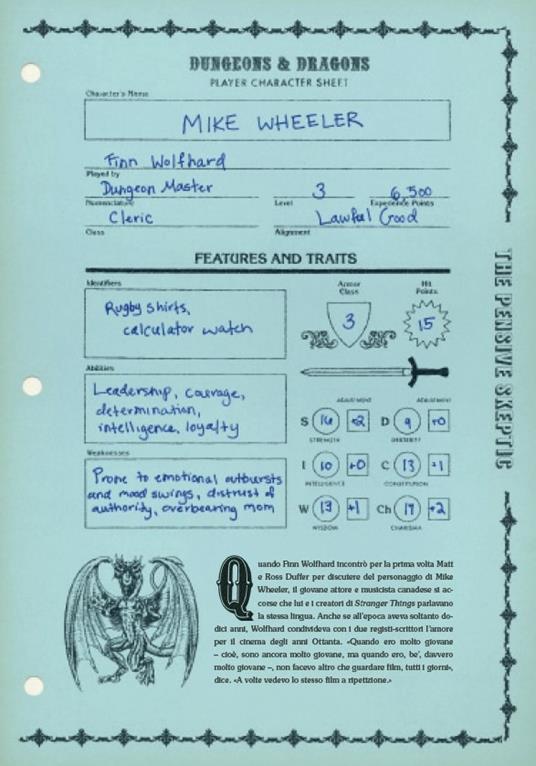 DUNGEONS & DRAGONS
PLAYER CHARACTER SHEET
Character's Name
MIKE WHEELER
Finn Wolfhard
Played by
Dungeon Master 3 6,500
Nomenclature Level Experience Points
Cleric Lawful Good
Class Alignment
FEATURES AND TRAITS
Identifiers
Rugby shirts,
calculator watch
Armor
Class
3
Hit
Points
15
Abilities
Leadership, courage,
determination,
intelligence, loyalty
Weaknesses
Prone to emotional outbursts
and mood swings, distrust of
authority, overbearing mom
ADJUSTMENT ADJUSTMENT
S 16 +2 D 9 +0
STRENGTH DEXTERITY
I 10 +0 C 13 +1
INTELLIGENCE CONSTITUTION
W 13 +1 Ch 17 +2
WISDOM CHARISMA
THE PENSIVE SKEPTIC
Quando Finn Wolfhard incontrò per la prima volta Matt
e Ross Duffer per discutere del personaggio di Mike
Wheeler, il giovane attore e musicista canadese si ac-
corse che lui e i creatori di Stranger Things parlavano
la stessa lingua. Anche se all'epoca aveva soltanto do-
dici anni, Wolfhard condivideva con i due registi-scrittori l'amore
per il cinema degli anni Ottanta. «Quando ero molto giovane
– cioè, sono ancora molto giovane, ma quando ero, be', davvero
molto giovane –, non facevo altro che guardare film, tutti i giorni»,
dice. «A volte vedevo lo stesso film a ripetizione.»